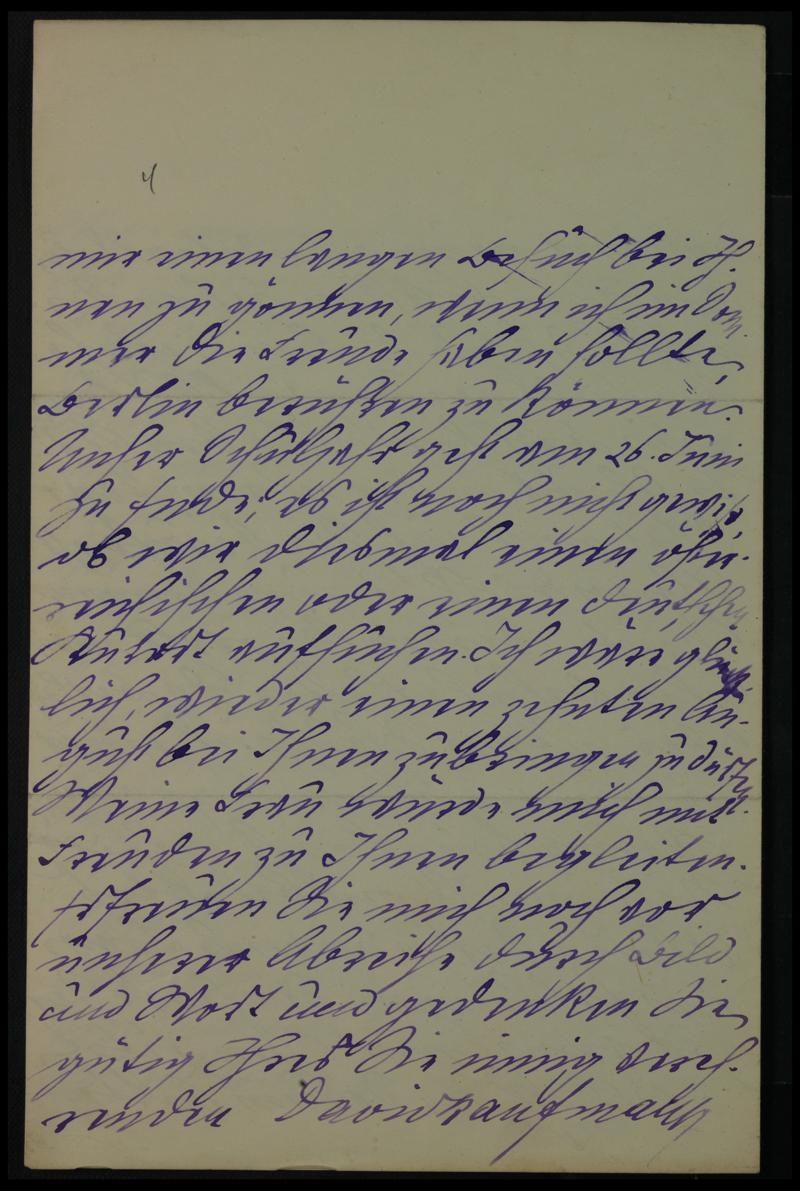 4
mir einen langen Besuch bei Ih-
nen zu gönnen, wenn ich im Som-
mer die Freude haben sollte,
Berlin berühren zu können.
Unser Schuljahr geht am 26. Juni
zu Ende; es ist noch nicht gewiß,
ob wir diesmal einen öster-
reichischen oder einen deutschen
Kurort aufsuchen. Ich wäre glück-
lich, wieder einen zehnten Au-
gust bei Ihnen zubringen zu dürfen.
Meine Frau würde mich mit
Freuden zu Ihnen begleiten.
Erfreuen Sie mich noch vor
unserer Abreise durch Bild
und Wort und gedenken Sie
gütig Ihres Sie innig vereh-
renden David Kaufmann